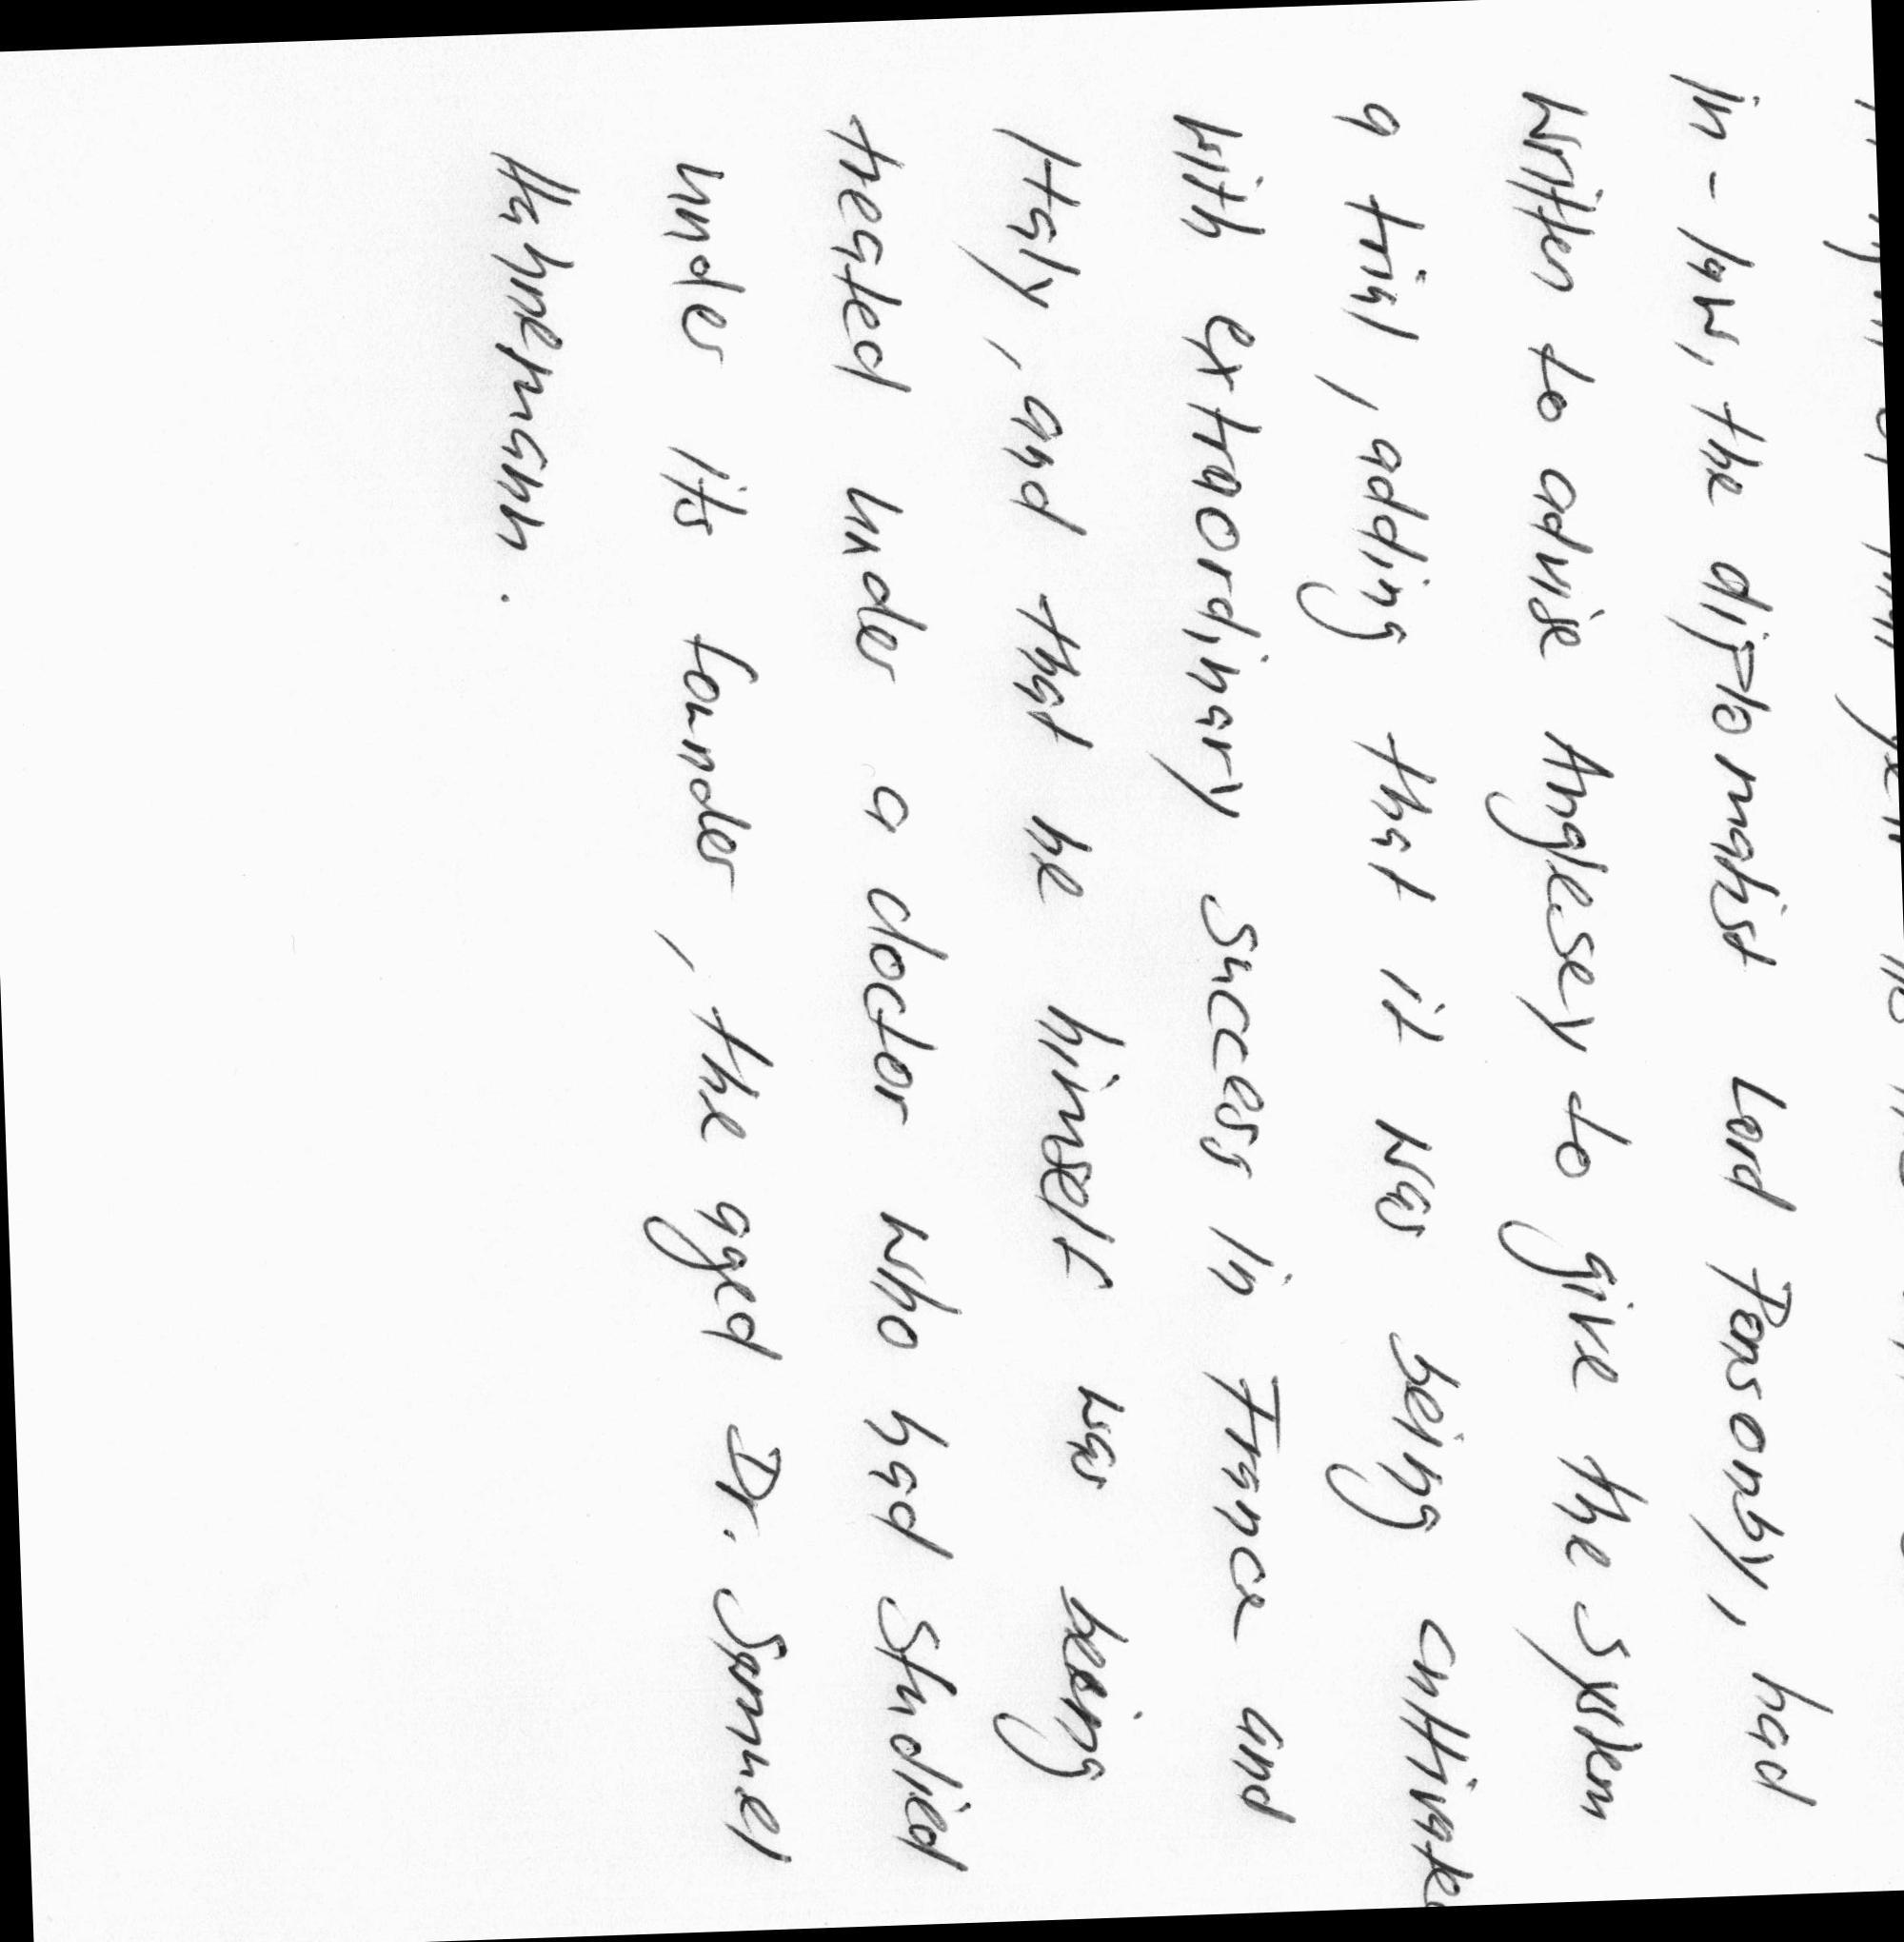 in-law, the diplomatist Lord Ponsonby, had
written to advise Anglesey to give the system
a trial, adding that it was being cultivated
with extraordinary success in France and
Italy, and that he himself was being
treated under a doctor who had studied
under its founder, the aged Dr. Samuel
Hahnemann.